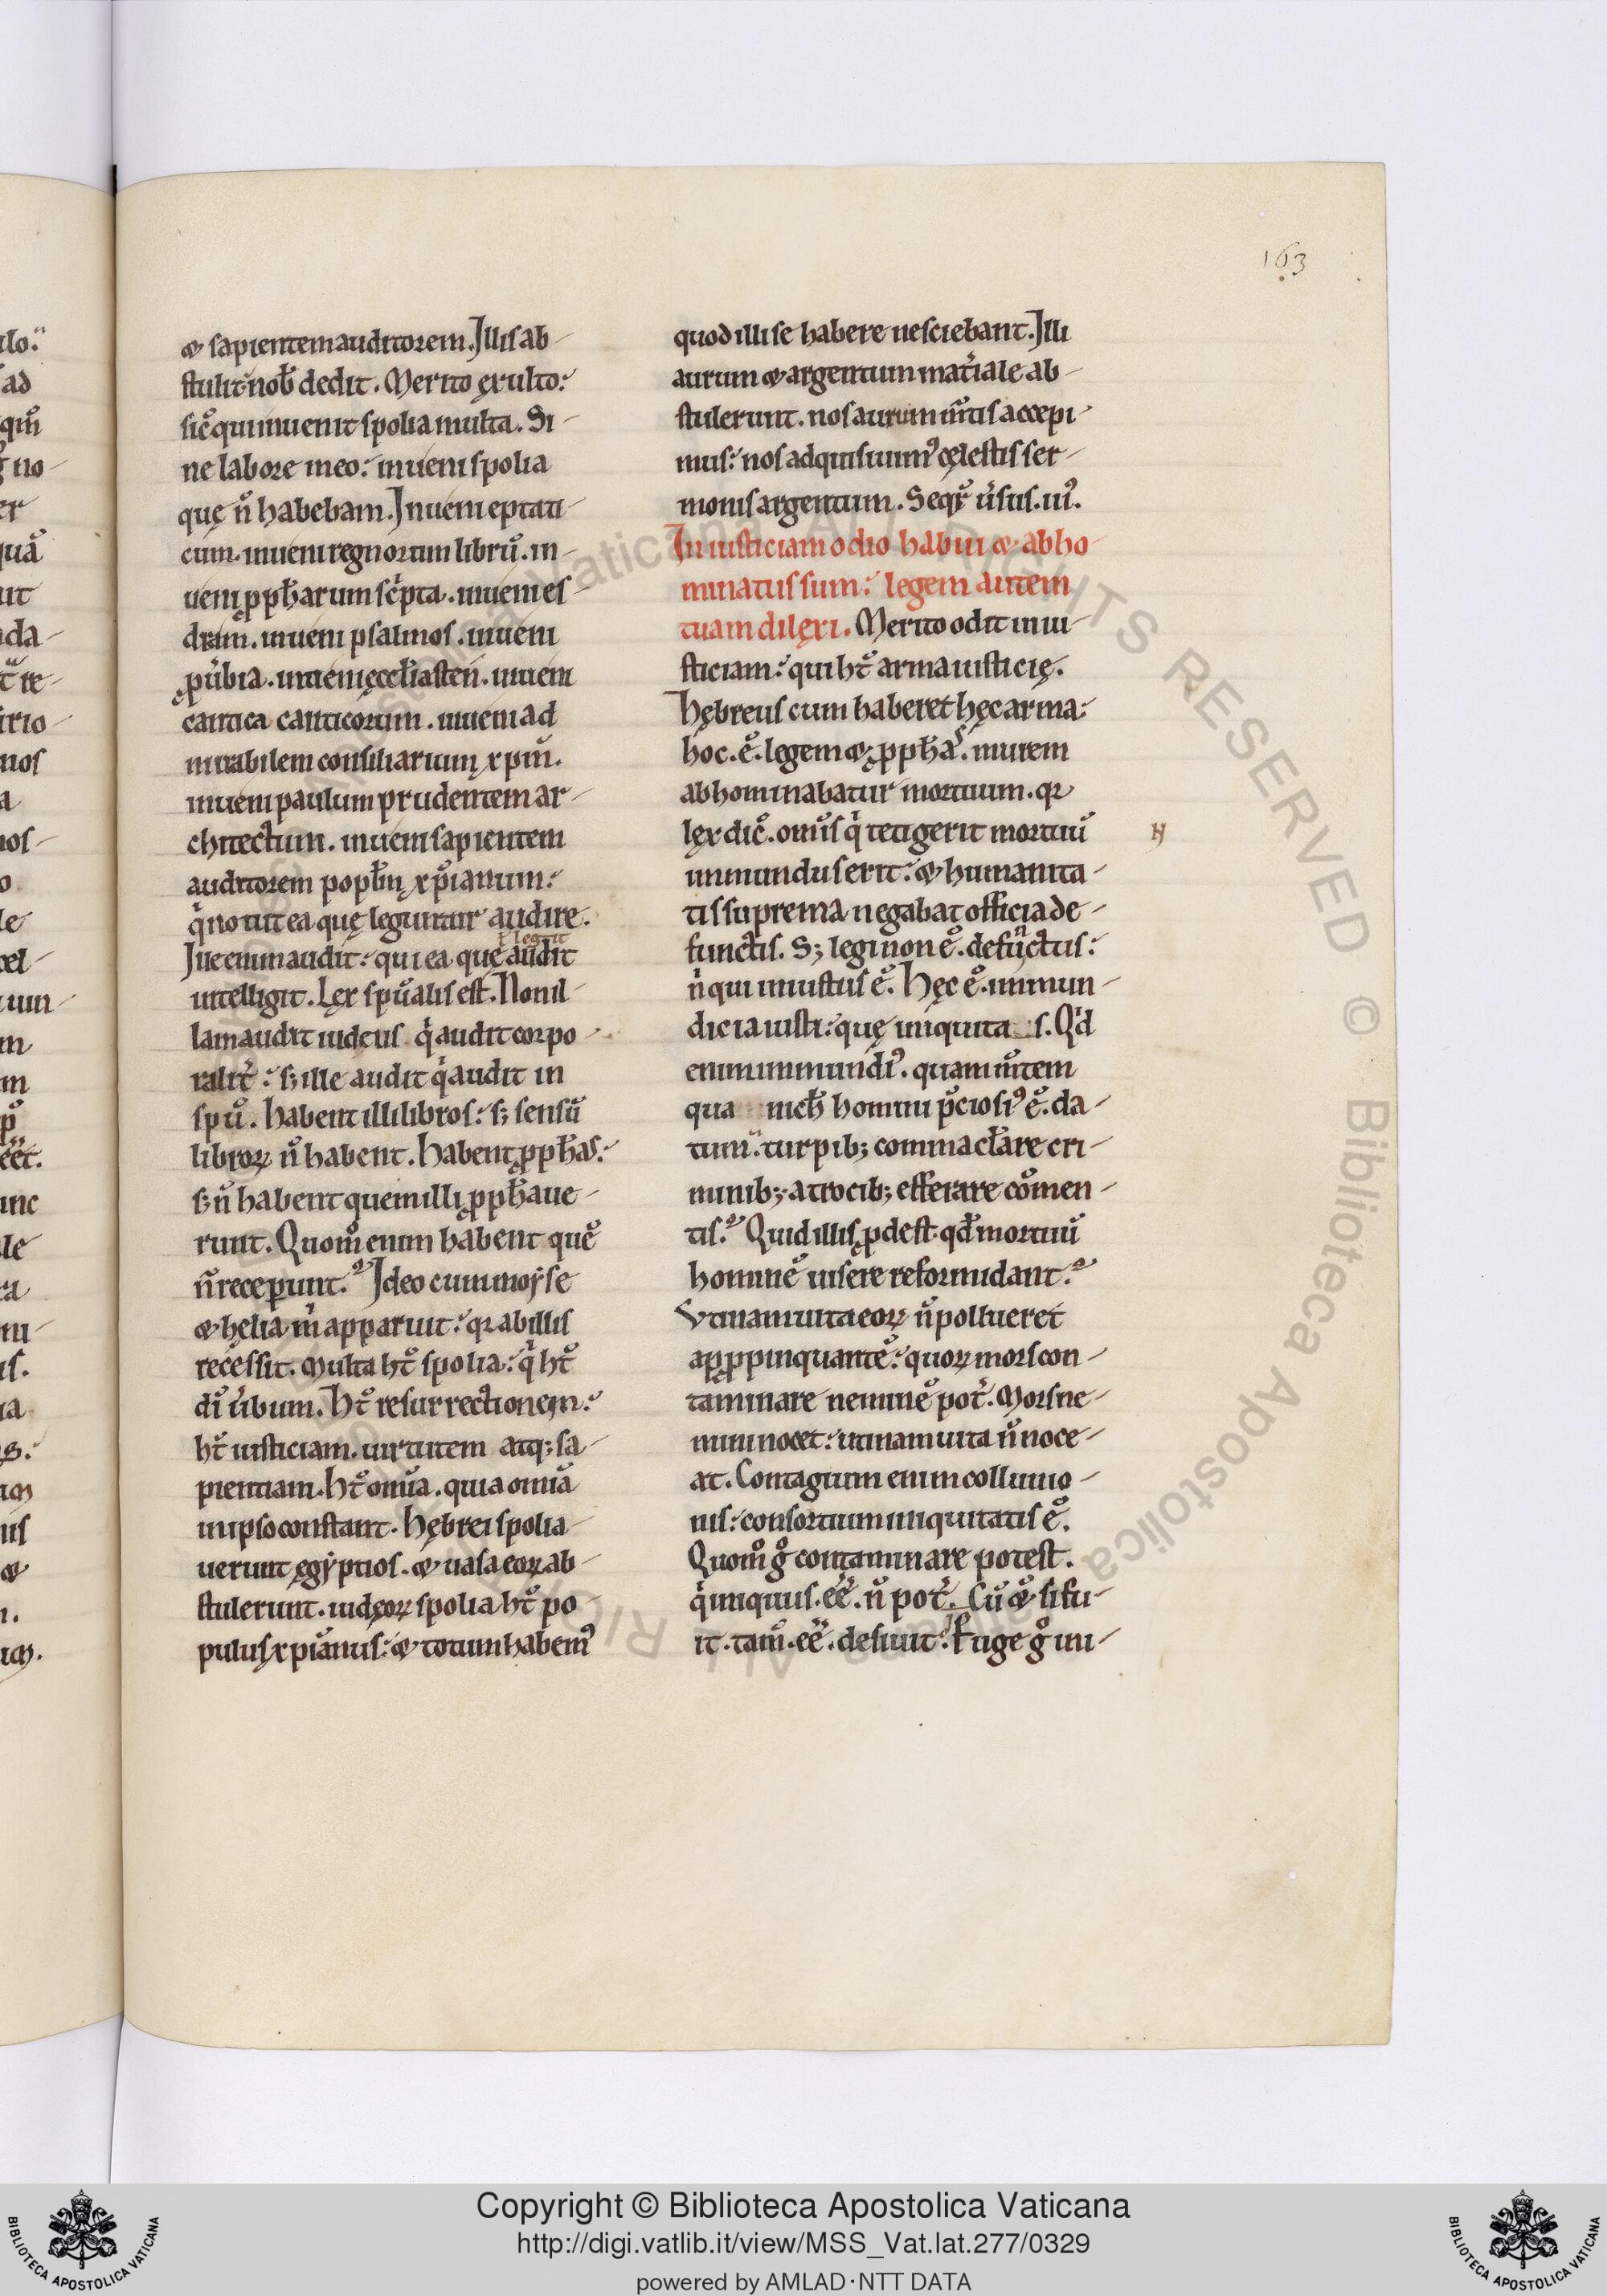 163
& sapientem auditorem. Illis ab-
stulit: nob̄ dedit. Merito ęxulto:
sic̄ qui inuenit spolia multa. Si-
ne labore meo: inueni spolia
quę n̄ habebam. Inueni eptati-
cum. inueni regnorum librū. in-
ueni ꝓph̄arum sc̓pta. inueni es-
dram. inueni psalmos. inueni
ꝓu̓bia. inueni ęccl̄iasten. inueni
cantica canticorum. inueni ad
mirabilem consiliarium xp̄m.
inueni paulum prudentem ar-
chitectum. inueni sapientem
auditorem popl̄m xp̄ianum:
q̓ nouit ea quę leguntur audire.
ł legit
Ille enim audit: qui ea quę audit
intelligit. Lex sp̄ualis est. Non il-
lam audit iudęus q̓ audit corpo-
ralit̓: sꝫ ille audit q̓ audit in
sp̄u. habent illi libros: sꝫ sensū
libroꝝ n̄ habent. habent ꝓph̄as:
sꝫ n̄ habent quem illi ꝓph̄aue-
runt. Quom̄ enim habent quē
n̄ receꝑunt? Ideo cum moẏse
& hęlia m̓ apparuit: qꝛ ab illis
recessit. Multa ht̄ spolia: q̓ ht̄
dī u̓bum. Ht̄ resurrectionem:
ht̄ iusticiam. uirtutem atqꝫ sa-
pientiam. ht̄ om̄ia. quia om̄ia
in ipso constant. hębrei spolia-
uerunt ęgẏptios. & uasa eoꝝ ab-
stulerunt. iudęoꝝ spolia ht̄ po-
pulus xp̄ianus: & totum habemꝰ
quod illi se habere nesciebant. Illi
aurum & argentum mat̓iale ab-
stulerunt. nos aurum m̄tis accepi-
mus: nos adquisiuimꝰ cęlestis ser-
monis argentum. Seqr̄ u̓sus. iiiꝰ.
Iniusticiam odio habui & abho-
minatus sum: legem autem
tuam dilęxi. Merito odit iniu-
sticiam: qui ht̄ arma iusticię.
Hębreus cum haberet hęc arma:
hoc. ē. legem & ꝓph̄as. murem
abhominabatur mortuum. qꝛ
lęx dic̄. om̄is q̓ tetigerit mortuū
inmundus erit: & humanita-
tis suprema negabat officia de-
functis. Sꝫ legi non ē. defunctus:
n̓ qui iniustus ē. Hęc ē. inmun-
dicia iusti: quę iniquita s. Qd̓
enim inmundiꝰ. quam m̄tem
qua nich̄ homini p̄ciosiꝰ ē. da-
tum: turpibꝫ commacl̄are cri-
minibꝫ. atrocibꝫ efferare cōmen-
tis? Quid illis ꝓdest qd̄ mortuū
hominē uisere reformidant?
Vtinam uita eoꝝ n̄ pollueret
apꝓpinquantē: quoꝝ mors con-
taminare neminē pot̓. Mors ne-
mini nocet: utinam uita n̄ noce-
at. Contagium enim colluuio-
nis: consortium iniquitatis ē.
Quom̄ g̊ contaminare potest.
q̓ iniquus. eē. n̄ pot̓. Cū & si fu-
it. tam̄. eē. desiuit? Fuge g̊ ini-
Copyright © Biblioteca Apostolica Vaticana
http://digi.vatlib.it/view/MSS_Vat.lat.277/0329
powered by AMLAD·NTT DATA
BIBLIOTECA APOSTOLICA VATICANA
BIBLIOTECA APOSTOLICA VATICANA